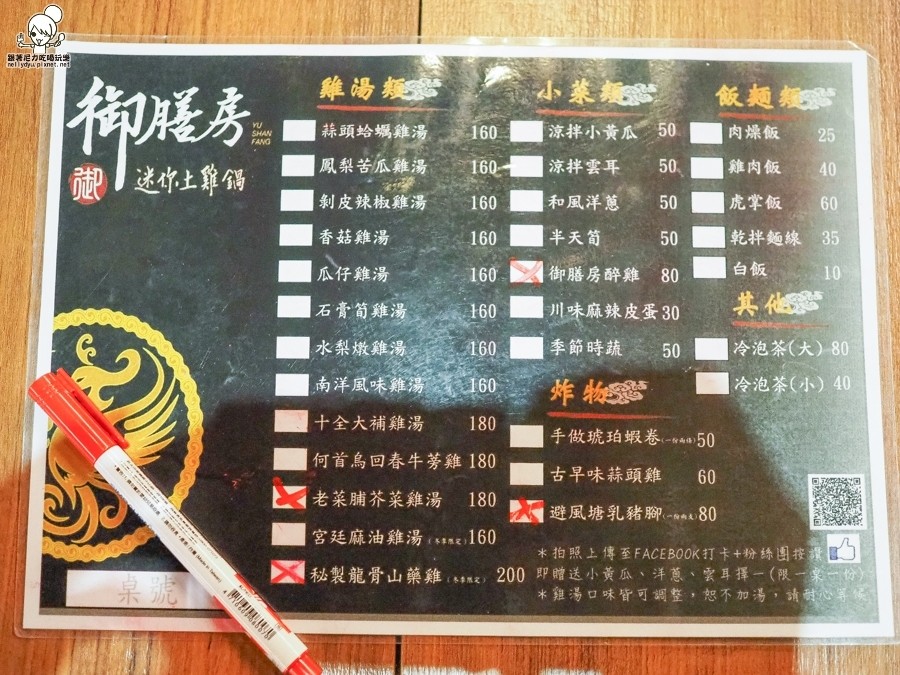 跟著尼力吃喝玩樂
nellydyu.pixnet.net
御膳房
YU
SHAN
FANG
御
迷你土雞鍋
雞湯類
蒜頭蛤蠣雞湯 160
鳳梨苦瓜雞湯 160
剝皮辣椒雞湯 160
香菇雞湯 160
瓜仔雞湯 160
石膏筍雞湯 160
水梨燉雞湯 160
南洋風味雞湯 160
十全大補雞湯 180
何首烏回春牛蒡雞 180
老菜脯芥菜雞湯 180
宮廷麻油雞湯(冬季限定) 160
秘製龍骨山藥雞(冬季限定) 200
小菜類
涼拌小黃瓜 50
涼拌雲耳 50
和風洋蔥 50
半天筍 50
御膳房醉雞 80
川味麻辣皮蛋 30
季節時蔬 50
炸物
手做琥珀蝦卷(一份兩條) 50
古早味蒜頭雞 60
避風塘乳豬腳(一份兩支) 80
飯麵類
肉燥飯 25
雞肉飯 40
虎掌飯 60
乾拌麵線 35
白飯 10
其他
冷泡茶(大) 80
冷泡茶(小) 40
*拍照上傳至FACEBOOK打卡+粉絲團按讚
即贈送小黃瓜、洋蔥、雲耳擇一(限一桌一份)
*雞湯口味皆可調整，恕不加湯，請耐心等候
桌號